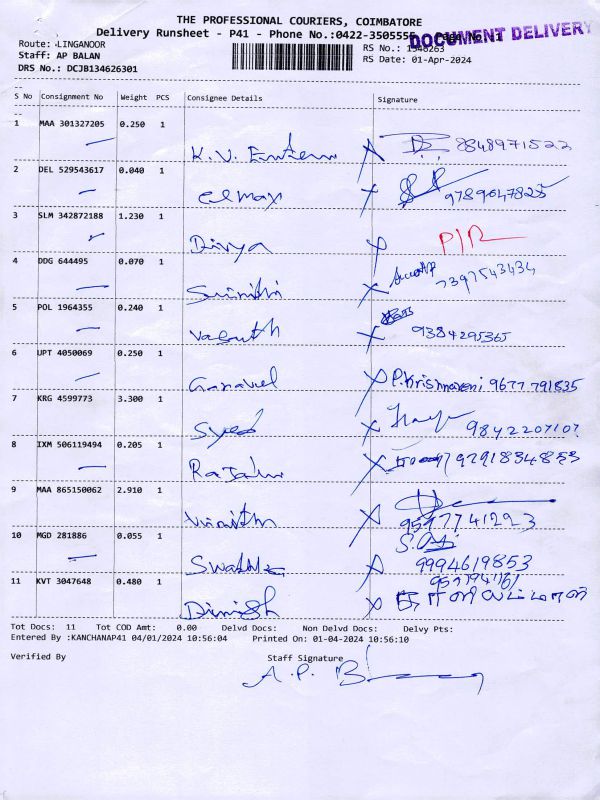 THE PROFESSIONAL COURIERS, COIMBATORE
Delivery Runsheet - P41 - Phone No.:0422-3505555 Page No.:1
DOCUMENT DELIVERY
Route: LINGANOOR
RS No.: 1348263
Staff: AP BALAN
RS Date: 01-Apr-2024
DRS No.: DCJB134626301
S No Consignment No Weight PCS Consignee Details Signature
1 MAA 301327205 0.250 1
K.V. 8848971522
2 DEL 529543617 0.040 1
elmax 9789047825
3 SLM 342872188 1.230 1
Divya P/R
4 DDG 644495 0.070 1
7397543434
5 POL 1964355 0.240 1
Vasuth 9384295365
6 UPT 4050069 0.250 1
Ganavel P.Krishnaveni 9677 791835
7 KRG 4599773 3.300 1
Syed 9842207107
8 IXM 506119494 0.205 1
9 MAA 865150062 2.910 1
9597741293
10 MGD 281886 0.055 1
9994619853
11 KVT 3047648 0.480 1
Dinish
Tot Docs: 11 Tot COD Amt: 0.00 Delvd Docs: Non Delvd Docs: Delvy Pts:
Entered By :KANCHANAP41 04/01/2024 10:56:04 Printed On: 01-04-2024 10:56:10
Verified By Staff Signature
A.P. B